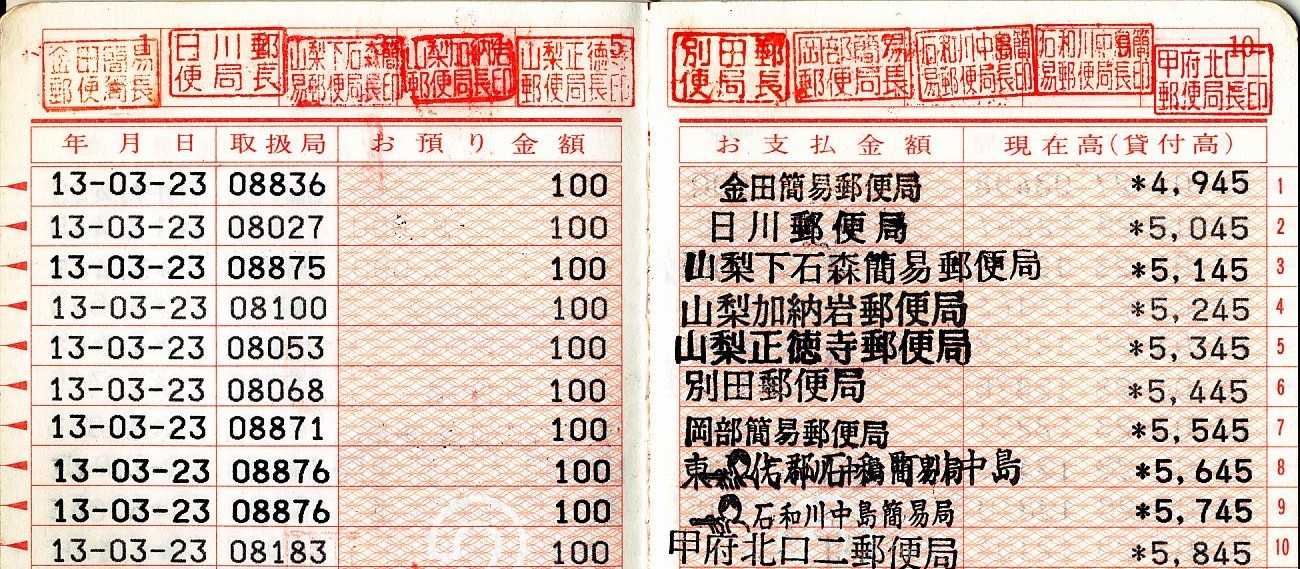 1 5 10
金田簡易郵便局長 日川郵便局長 山梨下石森簡易郵便局長印 山梨加納岩郵便局長印 山梨正徳寺郵便局長印 別田郵便局長 岡部簡易郵便局長 石和川中島簡易郵便局長印 石和川中島簡易郵便局長印 甲府北口二郵便局長印
年月日 取扱局 お預り金額 お支払金額 現在高(貸付高)
13-03-23 08836 100 金田簡易郵便局 *4,945 1
13-03-23 08027 100 日川郵便局 *5,045 2
13-03-23 08875 100 山梨下石森簡易郵便局 *5,145 3
13-03-23 08100 100 山梨加納岩郵便局 *5,245 4
13-03-23 08053 100 山梨正徳寺郵便局 *5,345 5
13-03-23 08068 100 別田郵便局 *5,445 6
13-03-23 08871 100 岡部簡易郵便局 *5,545 7
13-03-23 08876 100 中島 *5,645 8
13-03-23 08876 100 石和川中島簡易局 *5,745 9
13-03-23 08183 100 甲府北口二郵便局 *5,845 10